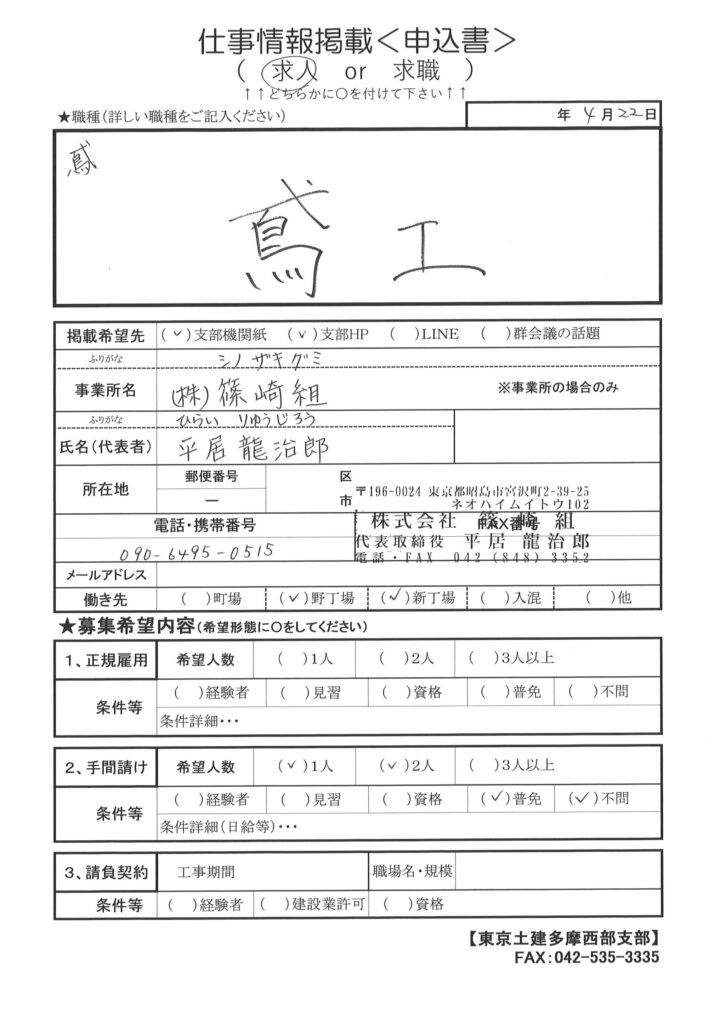 仕事情報掲載＜申込書＞
（ 求人 or 求職 ）
↑↑どちらかに○を付けて下さい↑↑
★職種（詳しい職種をご記入ください）
年 4月22日
鳶
鳶工
掲載希望先 （✓）支部機関紙 （✓）支部HP （ ）LINE （ ）群会議の話題
ふりがな シノザキグミ
事業所名 (株)篠崎組 ※事業所の場合のみ
ふりがな ひらい りゅうじろう
氏名（代表者） 平居 龍治郎
所在地 郵便番号 区
ー 市
〒196-0024 東京都昭島市宮沢町2-39-25
ネオハイムイトウ102
株式会社 篠崎組
代表取締役 平居龍治郎
電話・FAX 042（848）3352
電話・携帯番号 FAX番号
090-6495-0515
メールアドレス
働き先 （ ）町場 （✓）野丁場 （✓）新丁場 （ ）入混 （ ）他
★募集希望内容（希望形態に○をしてください）
1、正規雇用 希望人数 （ ）1人 （ ）2人 （ ）3人以上
条件等 （ ）経験者 （ ）見習 （ ）資格 （ ）普免 （ ）不問
条件詳細・・・
2、手間請け 希望人数 （✓）1人 （✓）2人 （ ）3人以上
条件等 （ ）経験者 （ ）見習 （ ）資格 （✓）普免 （✓）不問
条件詳細（日給等）・・・
3、請負契約 工事期間 職場名・規模
条件等 （ ）経験者 （ ）建設業許可 （ ）資格
【東京土建多摩西部支部】
FAX：042-535-3335